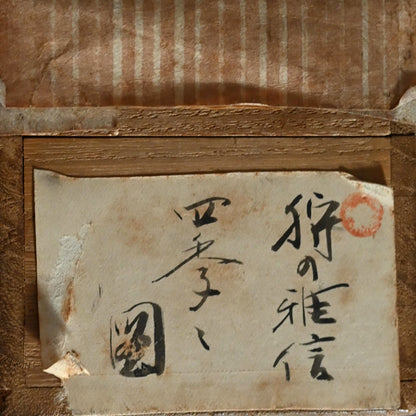 狩の雅信
四季之
圖